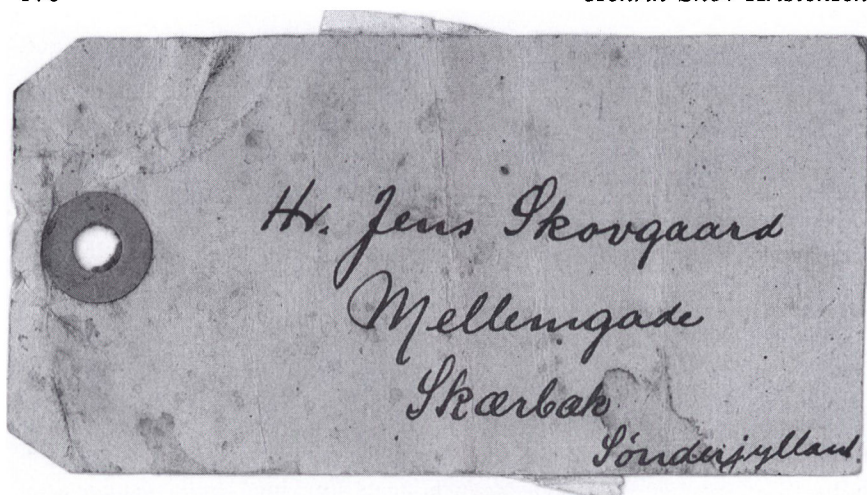 Hr. Jens Skovgaard
Mellemgade
Skærbæk
Sønderjylland.